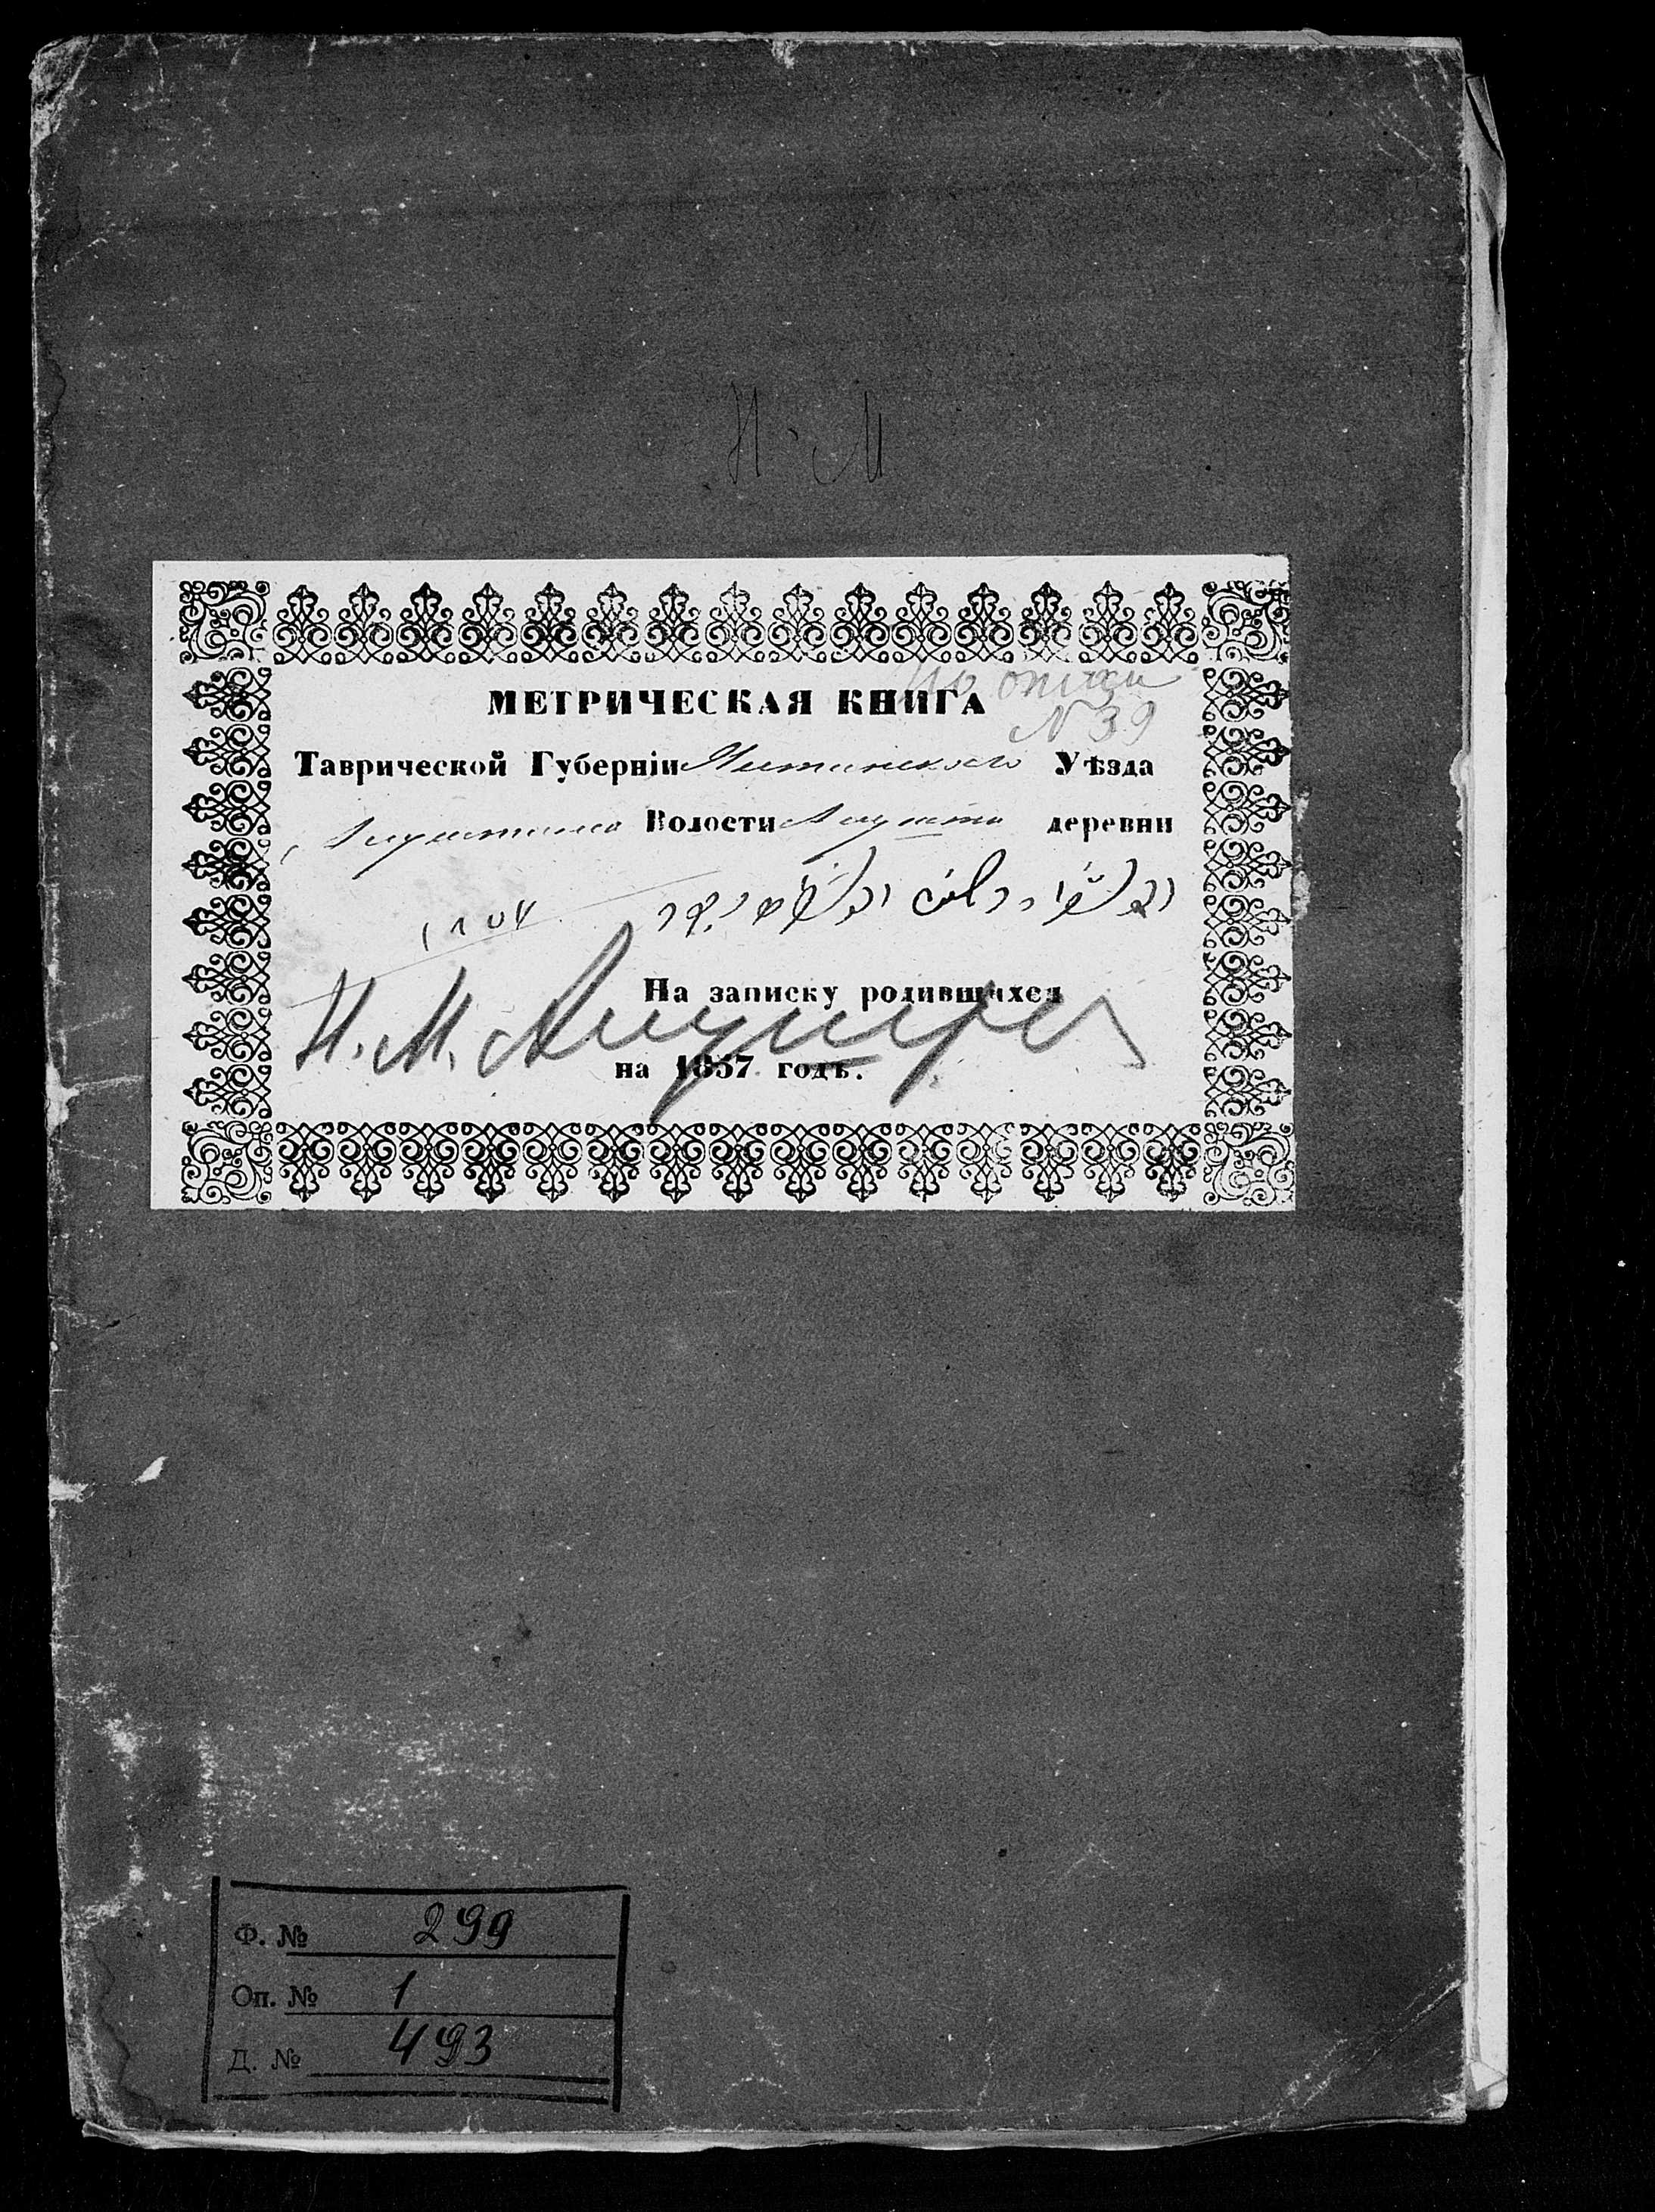 Н. М
По описи
МЕТРИЧЕСКАЯ КНИГА
N 39
Таврической Губерніи Ялтинского Уѣзда
Алуштина Волости Алушта деревни
١٨٥٧
На записку родившихся
Н. М. Алушта
на 1857 годъ.
Ф. № 299
Оп. № 1
Д. № 493